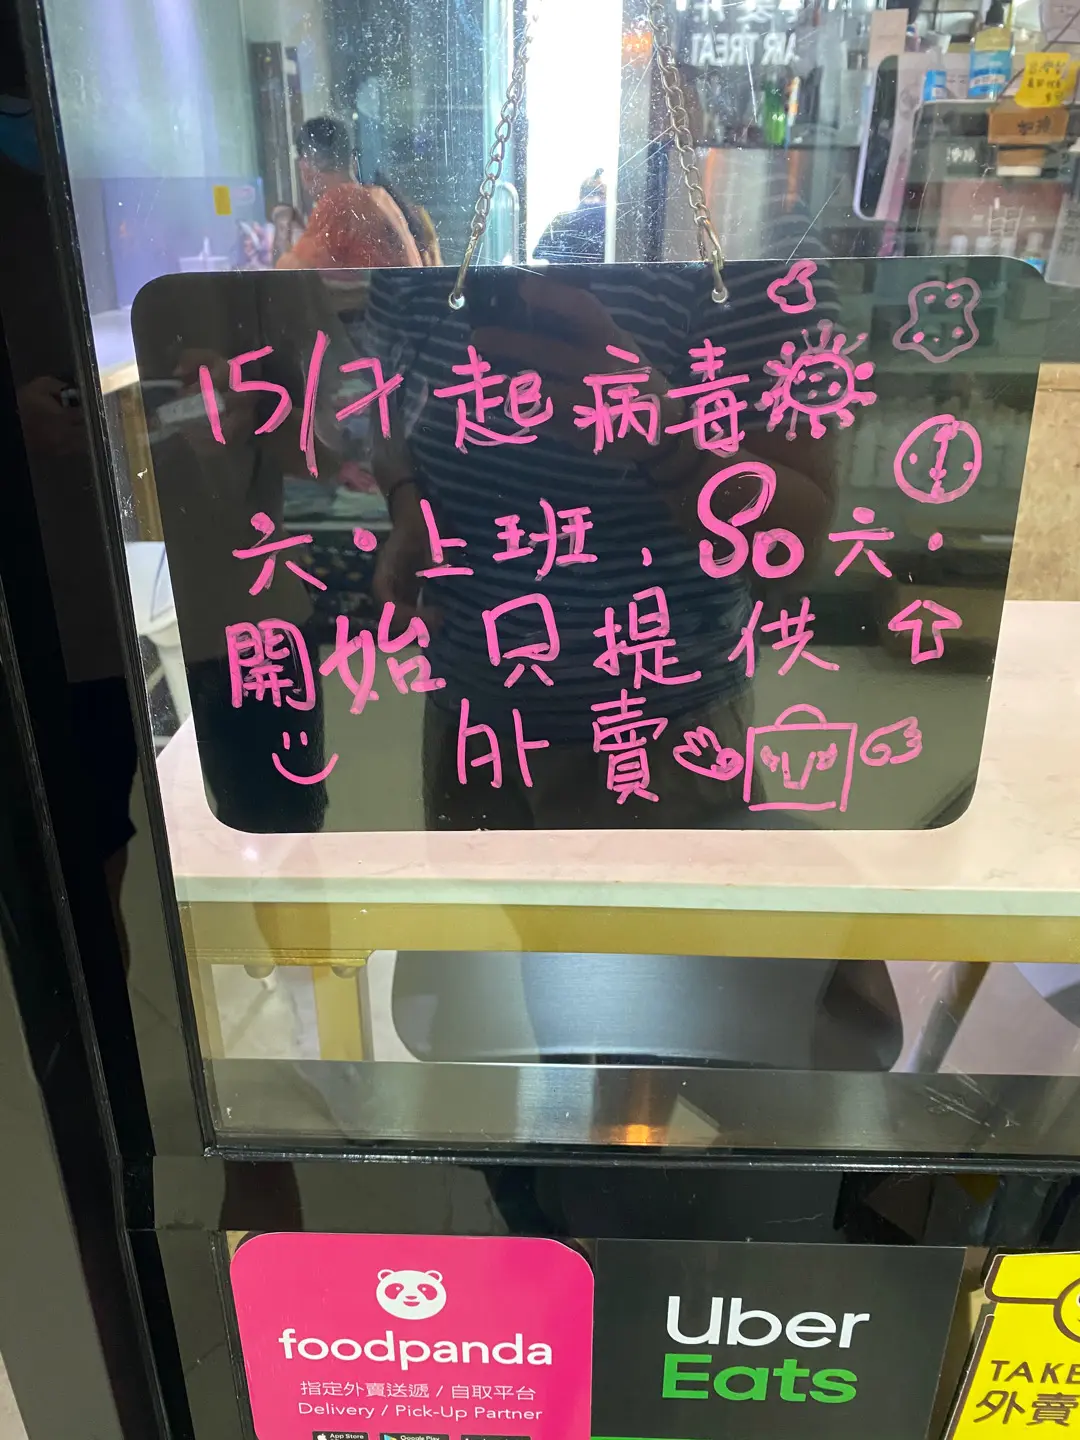 AIR TREAT
15/7起病毒
六·上班,So六·
開始只提供
外賣
foodpanda
指定外賣送遞 / 自取平台
Delivery / Pick-Up Partner
App Store
Google Play
Uber
Eats
TAKE
外賣